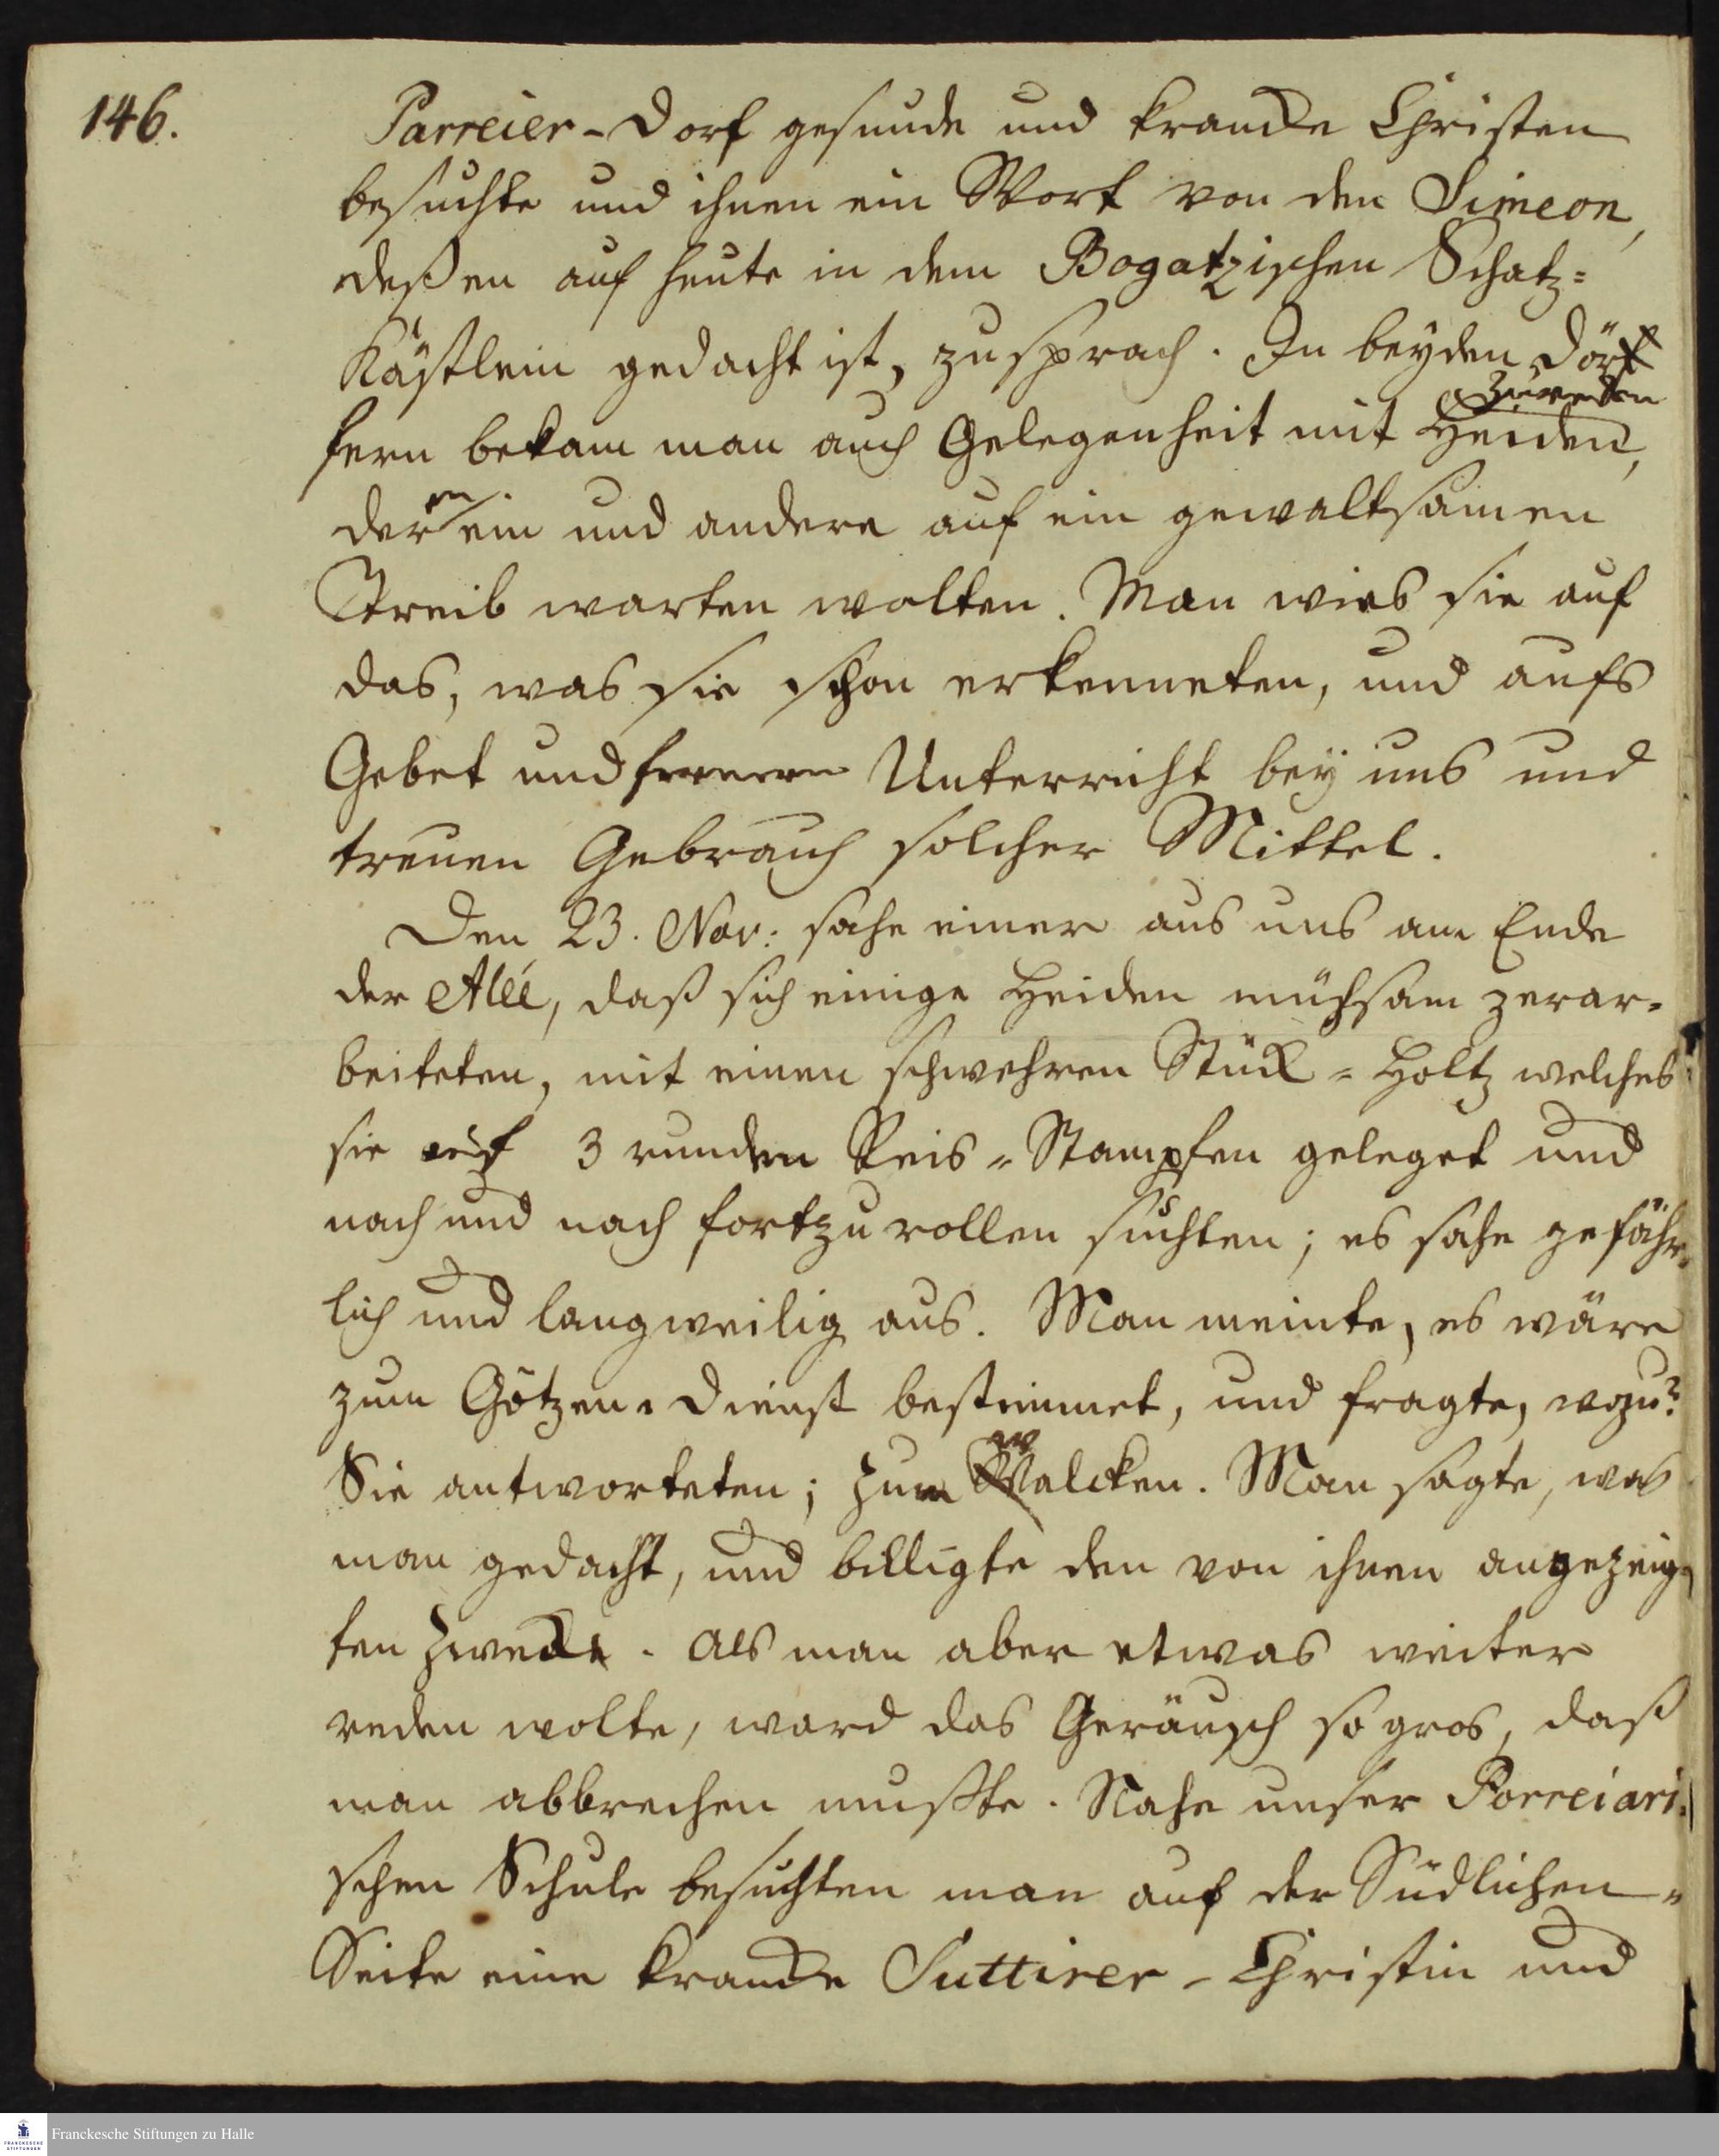 146.
Parreier-Dorf gesunde und krancke Christen
besuchte und ihnen ein Wort von dem Simeon,
deßen auf heute in dem Bogatzischen Schatz=
Kästlein gedacht ist, zusprach. In beyden Dörf
fern bekam man auch Gelegenheit mit Heiden,
zu reden
deren ein und andere auf ein gewaltsamen
Treib warten wolten. Man wies sie auf
das, was sie schon erkenneten, und aufs
Gebet und ferneren Unterricht bey uns und
treuen Gebrauch solcher Mittel.
Den 23. Nov: sahe einer aus uns am Ende
der Aleé, daß sich einige Heiden mühsam zerar=
beiteten, mit einen schwehren Stück=Holtz welches
sie auf 3 runden Reis=Stampfen geleget und
nach und nach fortzurollen suchten; es sahe gefähr=
lich und langweilig aus. Man meinte, es wäre
zum Götzen=Dienst bestimmet, und fragte, wozu?
Sie antworteten; zum Walcken. Man sagte, was
man gedacht, und billigte den von ihnen angezeig=
ten Zweck. Als man aber etwas weiter
reden wolte, ward das Geräusch so gros, daß
man abbrechen mußte. Nahe unser Porreiari=
schen Schule besuchten man auf der Südlichen=
Seite eine krancke Suttirer-Christin und
Franckesche Stiftungen zu Halle
FRANCKESCHE STIFTUNGEN